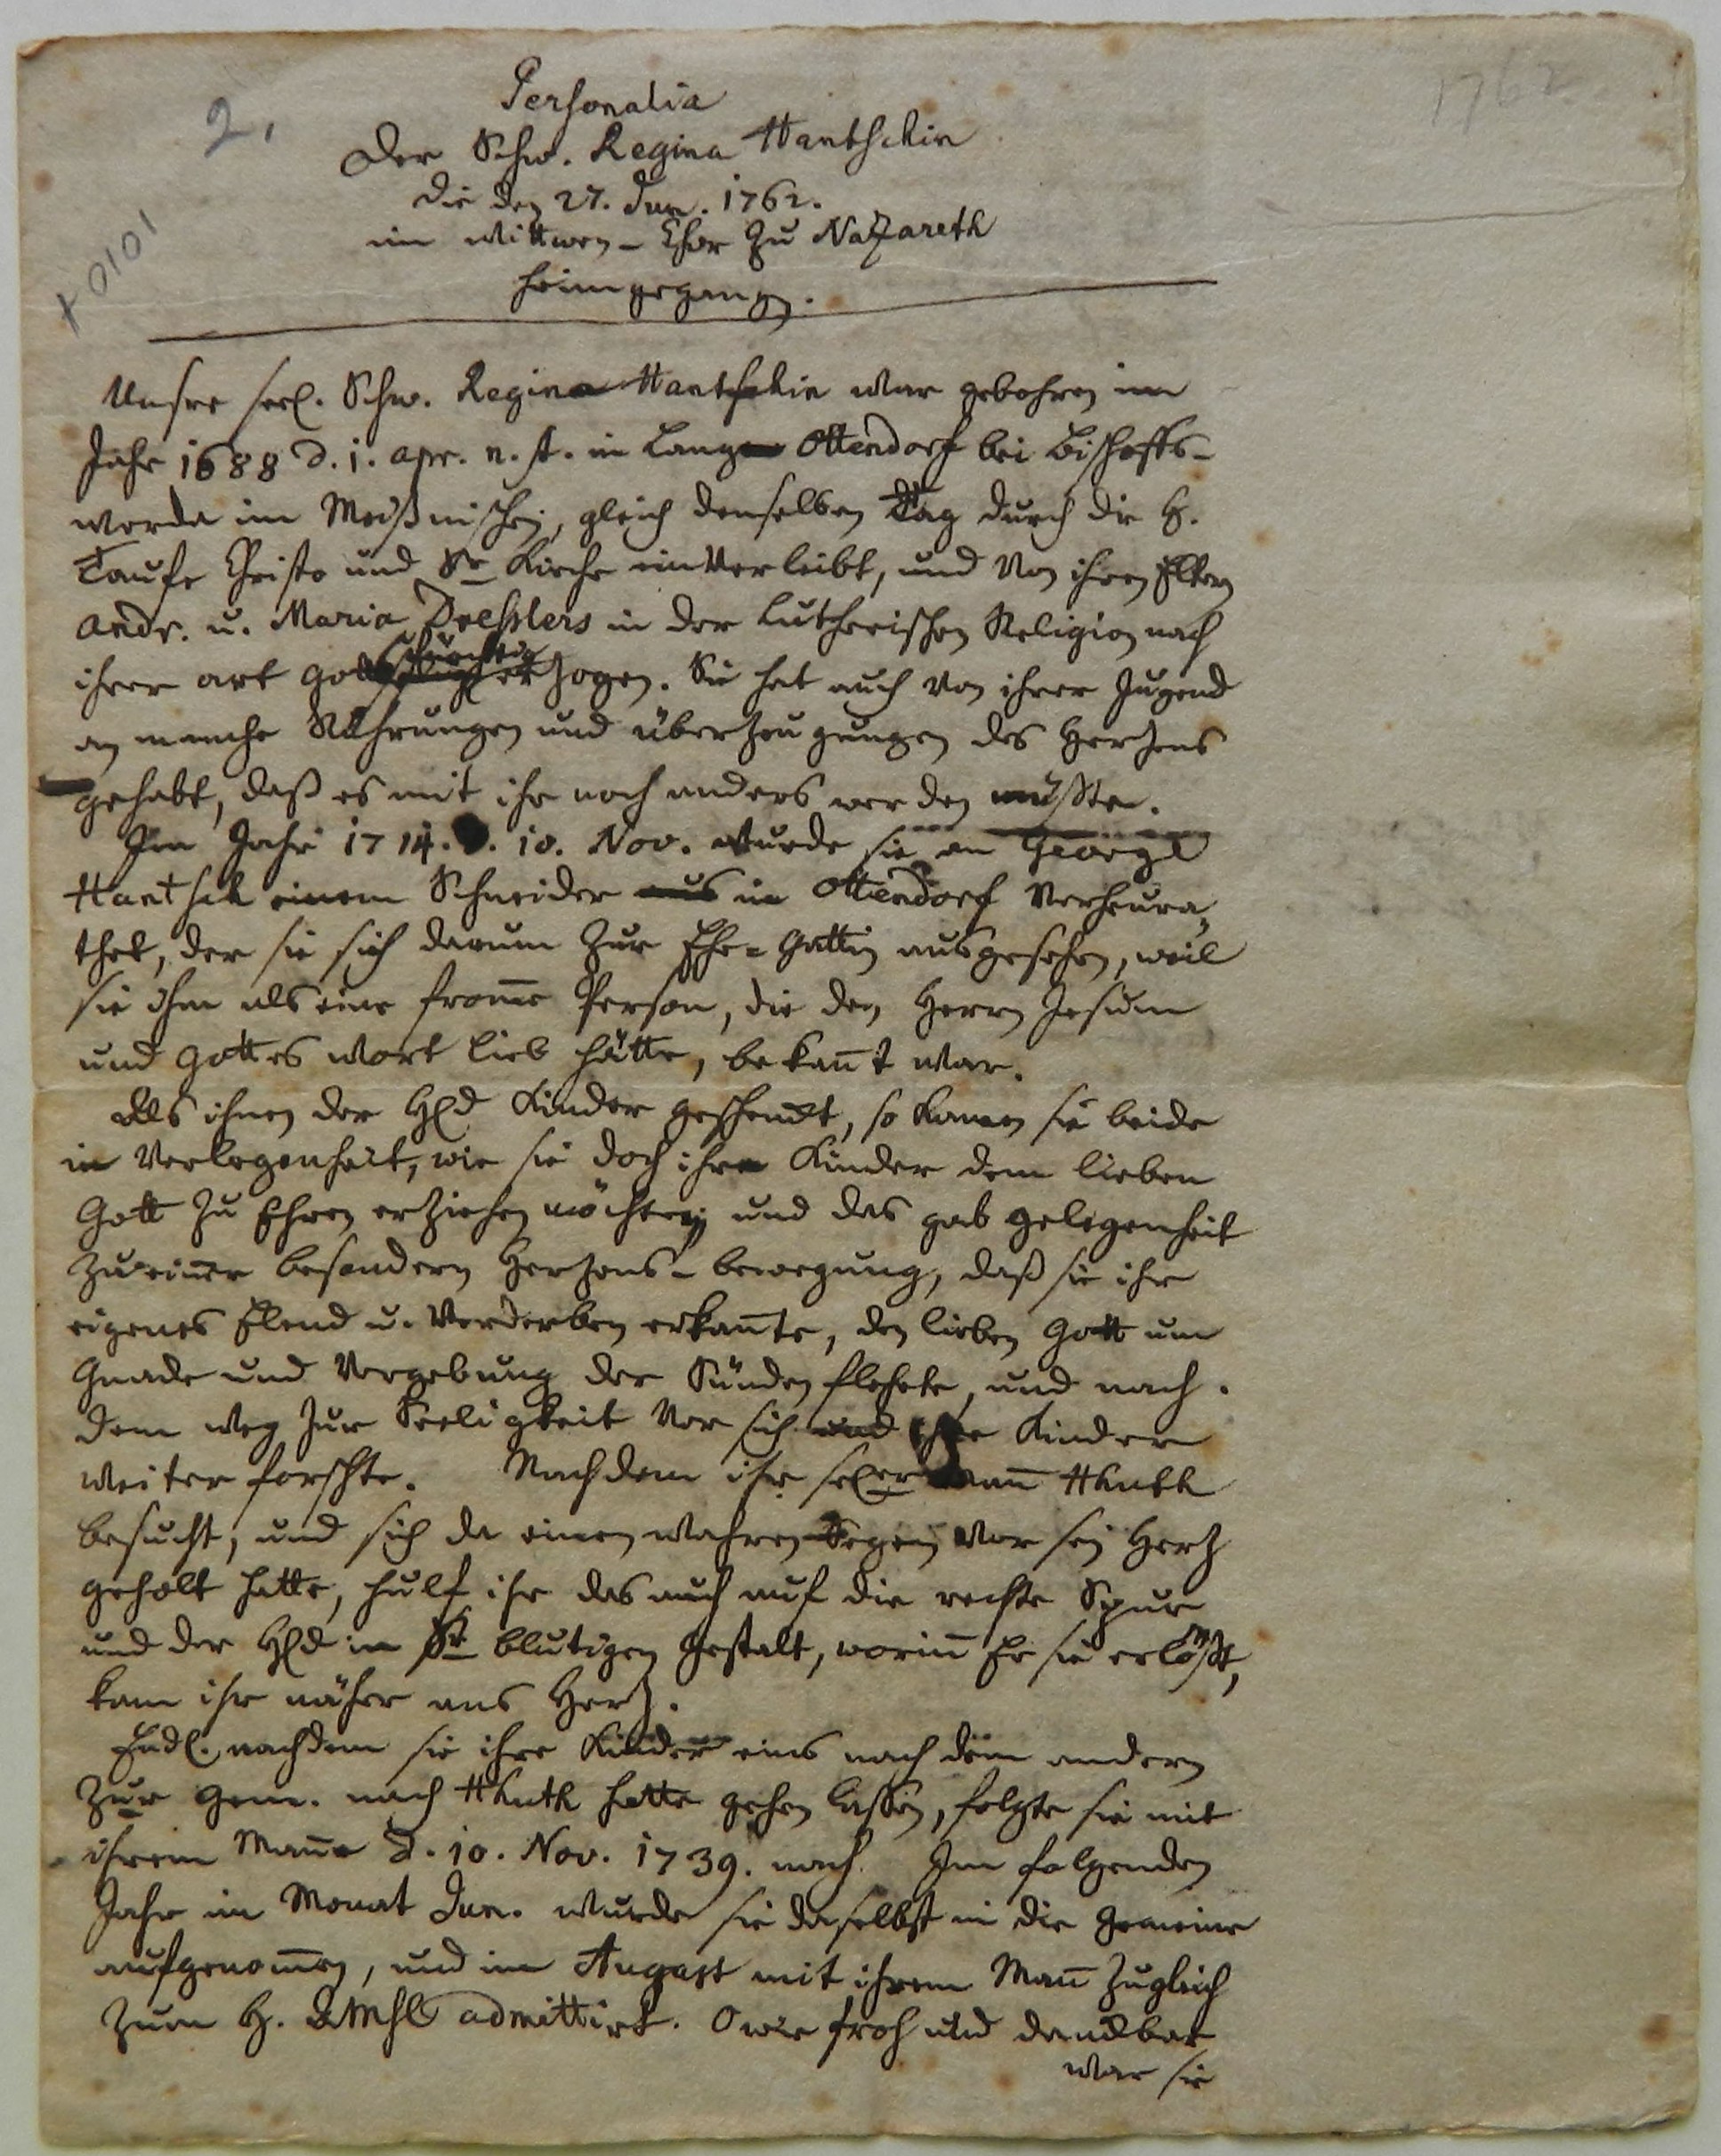 2.
1762
+ 0101
Personalia
der Schw. Regina Hantschin
die den 27. Jun. 1762.
im Wittwen-Chor zu Nazareth
heimgegangen.
Unsre seel. Schw. Regina Hantschin war gebohren im
Jahr 1688 d. 1. apr. n. st. in Lang Ottendorf bei Bischoffs-
werda im Meißnischen, gleich denselben Tag durch die H.
Taufe Christo und Sr Kirche einverleibt, und von ihren Eltern
Andr. u. Maria Dresslers in der Lutherischen Religion nach
ihrer art gottsfürchtig erzogen. Sie hat auch von ihrer Jugend
an manche Rührungen und überzeugungen des Hertzens
gehabt, daß es mit ihr noch anders werden müßte.
Im Jahr 1714. d. 10. Nov. wurde sie an George
Hantsch einem Schneider in Ottendorf verheura,
thet, der sie sich darum zur Ehe-Gattin ausgesehen, weil
sie ihm als eine fromme Person, die den Herrn Jesum
und Gottes Wort lieb hätte, bekañt war.
Als ihnen der Hld Kinder geschenckt, so kamen sie beide
in Verlegenheit, wie sie doch ihre Kinder dem lieben
Gott zu Ehren erziehen möchten; und das gab gelegenheit
zu einer besondern Hertzens-bewegung, daß sie ihr
eigenes Elend u. Verderben erkañte, den lieben Gott um
Gnade und Vergebung der Sünden flehete, und nach
dem weg zur Seeligkeit vor sich und ihre Kinder
weiter forschte. Nachdem ihr sel.er Mañ Hhuth
besucht, und sich da einen wahren Segen vor sein Hertz
geholt hatte, hulf ihr das auch auf die rechte Spur
und der Hld in Sr blutigen Gestalt, woriñ Er sie erlößt,
kam ihr näher ans Hertz.
Endl. nachdem sie ihre Kinder eins nach dem andern
zur Gem. nach Hhuth hatte gehen lassen, folgte sie mit
ihrem Mañe d. 10. Nov. 1739. nach. Im folgenden
Jahr im Monat Jun. wurde sie daselbst in die Gemeine
aufgenom̄en, und im August mit ihrem Mañ zugleich
zum H. Abmhl admittirt. O wie froh und danckbar
war sie